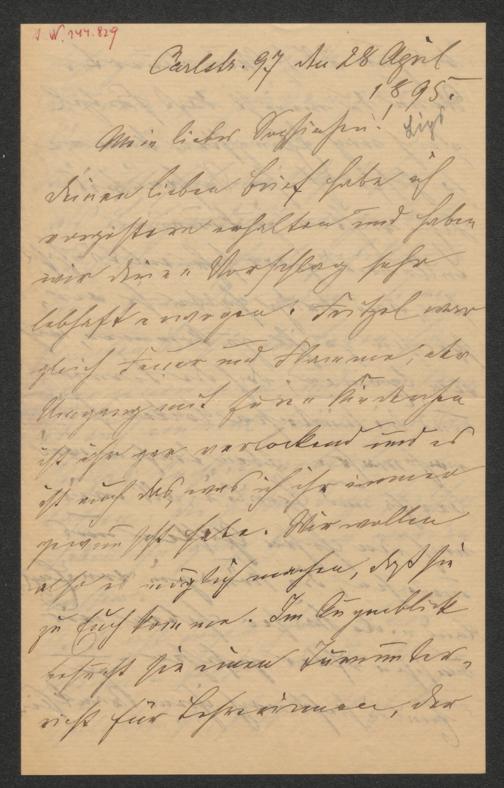 W. 244.829
Carlstr. 97 den 28 April
1895.
Mein liebes Sophiechen!
Deinen lieben Brief habe ich
vorgestern erhalten und haben
wir Deinen Vorschlag sehr
lebhaft erwogen. Fritzel war
gleich Feuer und Flamme, der
Umgang mit Euren Kinderchen
ist ihr gar verlockend und es
ist auch das, was ich ihr immer
gewünscht habe. Wir wollen
also es möglich machen, daß sie
zu Euch komme. Im Augenblick
besucht sie einen Turnunter-
richt für Lehrerinnen, der